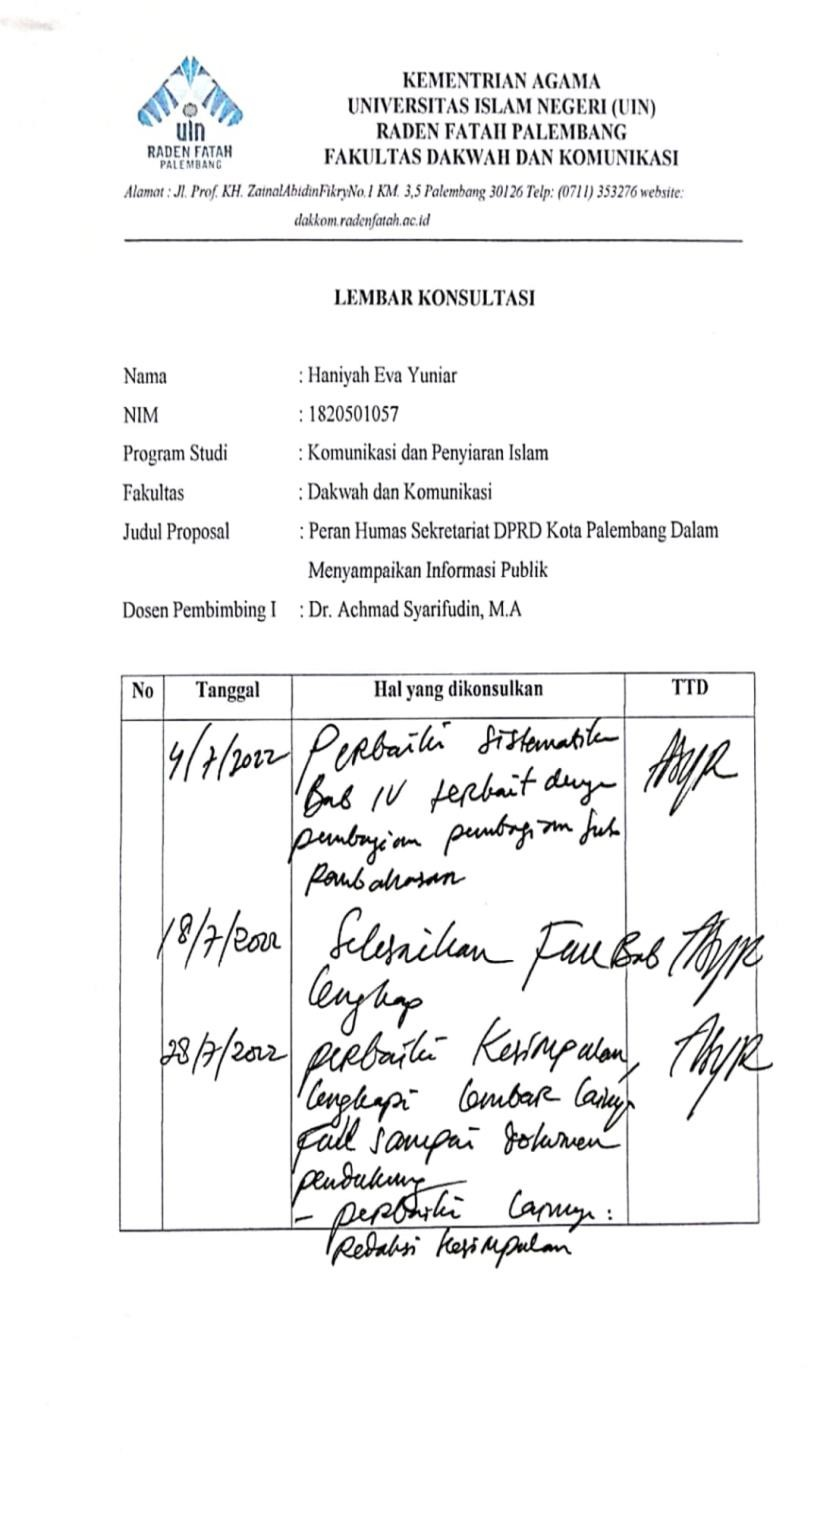 uin
RADEN FATAH
PALEMBANG
KEMENTRIAN AGAMA
UNIVERSITAS ISLAM NEGERI (UIN)
RADEN FATAH PALEMBANG
FAKULTAS DAKWAH DAN KOMUNIKASI
Alamat : Jl. Prof. KH. ZainalAbidinFikryNo.1 KM. 3,5 Palembang 30126 Telp: (0711) 353276 website:
dakkom.radenfatah.ac.id
LEMBAR KONSULTASI
Nama : Haniyah Eva Yuniar
NIM : 1820501057
Program Studi : Komunikasi dan Penyiaran Islam
Fakultas : Dakwah dan Komunikasi
Judul Proposal : Peran Humas Sekretariat DPRD Kota Palembang Dalam
Menyampaikan Informasi Publik
Dosen Pembimbing I : Dr. Achmad Syarifudin, M.A
No Tanggal Hal yang dikonsulkan TTD
4/7/2022 Perbaiki Sistematika
Bab IV terkait dengan
pembagian pembagian sub
Pembahasan
18/7/2022 Selesaikan Bab
lengkap
28/7/2022 perbaiki Kesimpulan,
lengkapi lembar
Full sampai dokumen
pendukung
- perbaiki :
Redaksi Kesimpulan